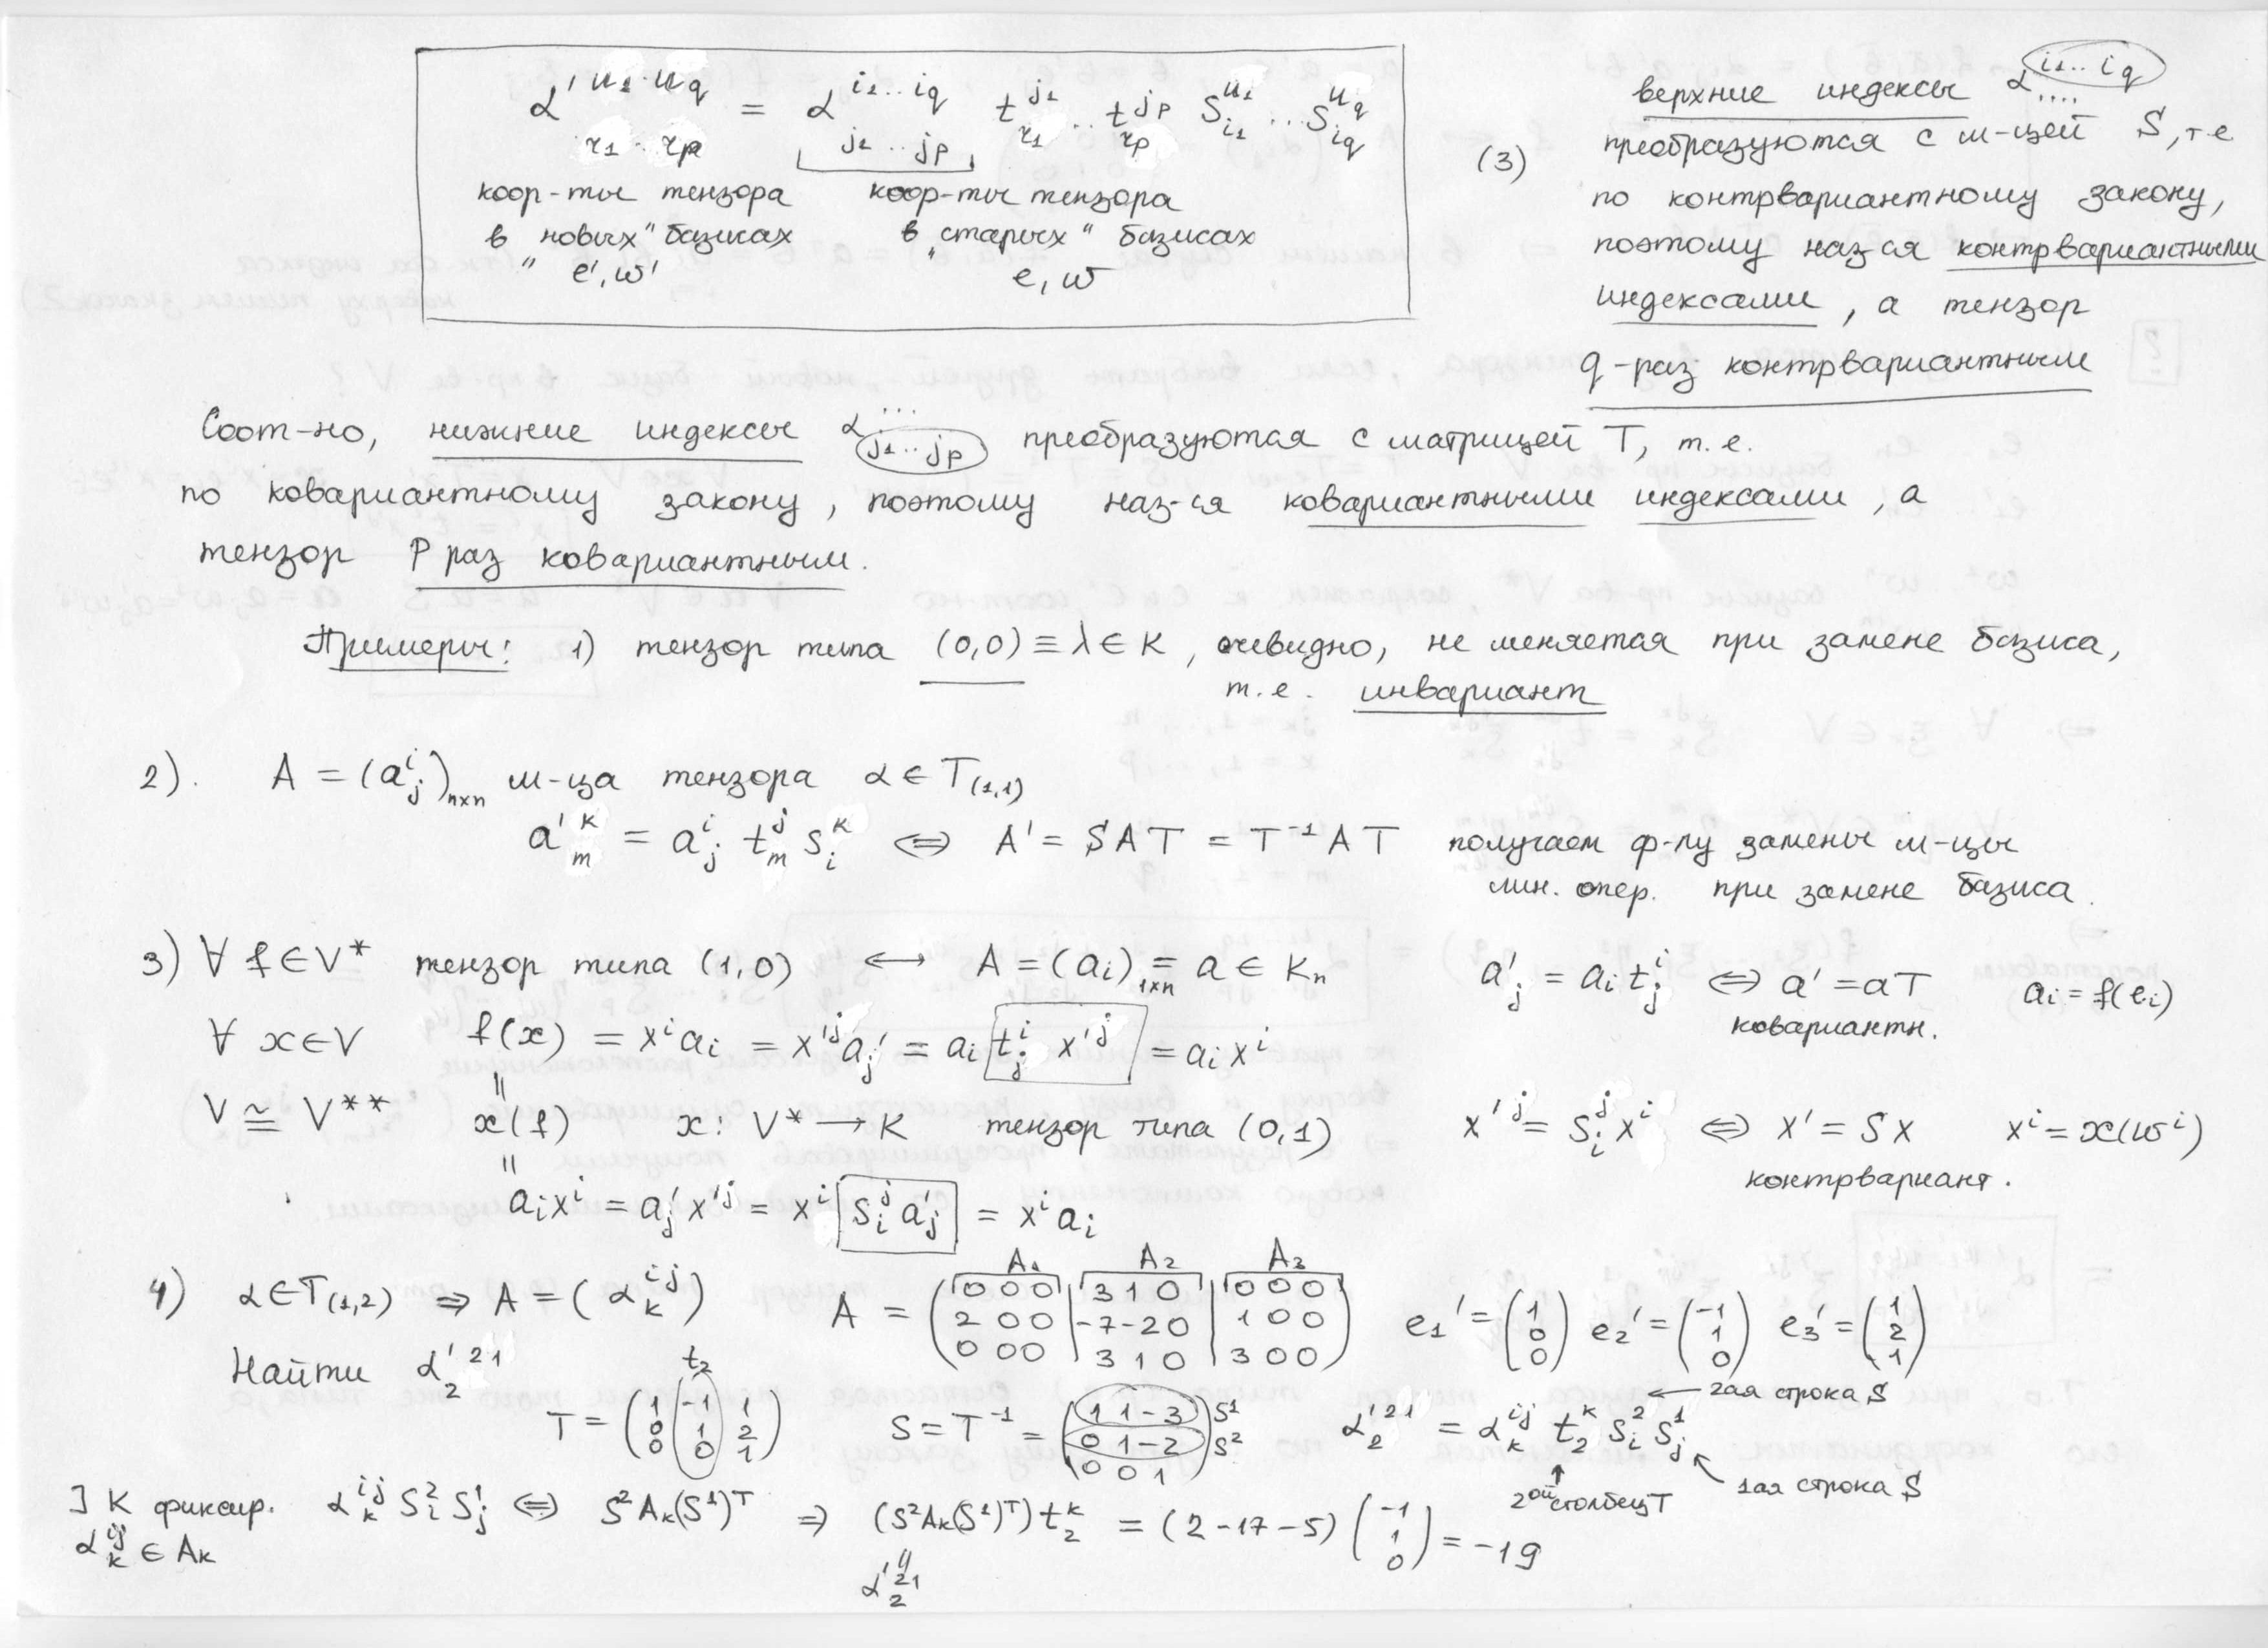 α'^{u1..uq}_{r1..rp} = α^{i1...iq}_{j1..jp} t^{j1}_{r1} .. t^{jp}_{rp} S^{u1}_{i1} ... S^{uq}_{iq}
коор-ты тензора в „новых" базисах e', w'
коор-ты тензора в „старых" базисах e, w
(3)
верхние индексы α^{i1...iq}_{....}
преобразуются с м-цей S, т.е
по контрвариантному закону,
поэтому наз-ся контрвариантными
индексами, а тензор
q-раз контрвариантным
Соот-но, нижние индексы α^{...}_{j1..jp} преобразуются с матрицей T, т.е.
по ковариантному закону, поэтому наз-ся ковариантными индексами, а
тензор p раз ковариантным.
Примеры: 1) тензор типа (0,0) ≡ λ ∈ K, очевидно, не меняется при замене базиса,
т.е. инвариант
2). A = (a^i_j)_{n×n} м-ца тензора α ∈ T_{(1,1)}
a'^k_m = a^i_j t^j_m s^k_i ⇔ A' = SAT = T^{-1}AT получаем ф-лу замены м-цы
лин. опер. при замене базиса.
3) ∀ f ∈ V* тензор типа (1,0) ⟷ A = (a_i)_{1×n} = a ∈ K_n a'_j = a_i t^i_j ⇔ a' = aT a_i = f(e_i)
ковариантн.
∀ x ∈ V f(x) = x^i a_i = x'^j a'_j = a_i t^i_j x'^j = a_i x^i
||
V ≅ V** x(f) x: V* → K тензор типа (0,1) x'^j = s^j_i x^i ⇔ x' = Sx x^i = x(w^i)
контрвариант.
||
a_i x^i = a'_j x'^j = x^i s^j_i a'_j = x^i a_i
4) α ∈ T_{(1,2)} ⇒ A = (α^{ij}_k)
A1 A2 A3
A = ( 0 0 0 | 3 1 0 | 0 0 0
2 0 0 | -7 -2 0 | 1 0 0
0 0 0 | 3 1 0 | 3 0 0 )
e1' = (1 0 0) e2' = (-1 1 0) e3' = (1 2 1)
Найти α'^{21}_2
t2
T = ( 1 -1 1
0 1 2
0 0 1 )
S = T^{-1} = ( 1 1 -3
0 1 -2
0 0 1 ) S^1 S^2
α'^{21}_2 = α^{ij}_k t^k_2 s^2_i s^1_j
← 2ая строка S
2ой столбец T
1ая строка S
] k фиксир. α^{ij}_k S^2_i S^1_j ⇔ S^2 A_k (S^1)^T ⇒ (S^2 A_k (S^1)^T) t^k_2 = (2 -17 -5) (-1 1 0) = -19
α^{ij}_k ∈ A_k
||
α'^{21}_2